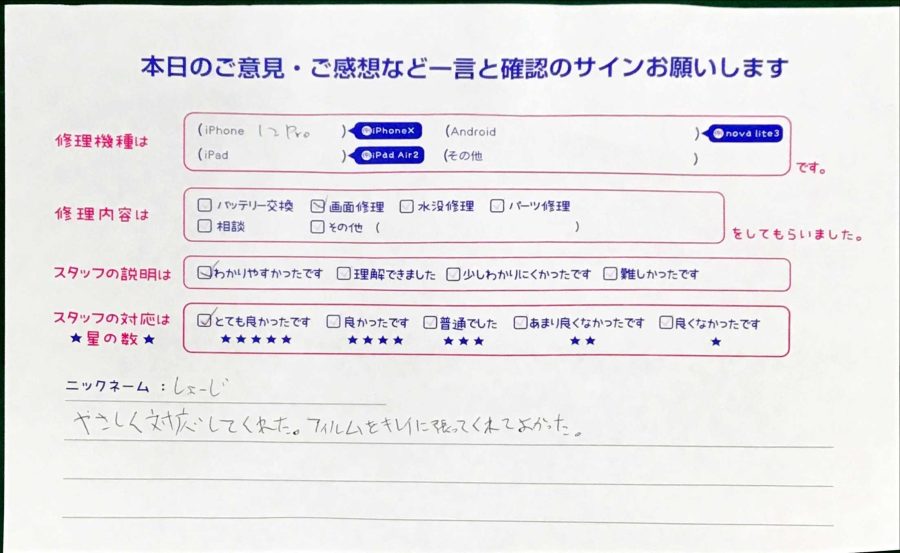 本日のご意見・ご感想など一言と確認のサインお願いします
修理機種は (iPhone 12 Pro ) iPhoneX (Android ) nova lite3
(iPad ) iPad Air2 (その他 ) です。
修理内容は バッテリー交換 画面修理 水没修理 パーツ修理
相談 その他 ( ) をしてもらいました。
スタッフの説明は わかりやすかったです 理解できました 少しわかりにくかったです 難しかったです
スタッフの対応は とても良かったです 良かったです 普通でした あまり良くなかったです 良くなかったです
★星の数★ ★★★★★ ★★★★ ★★★ ★★ ★
ニックネーム:しょーじ
やさしく対応してくれた。フィルムをキレイに張ってくれてよかった。